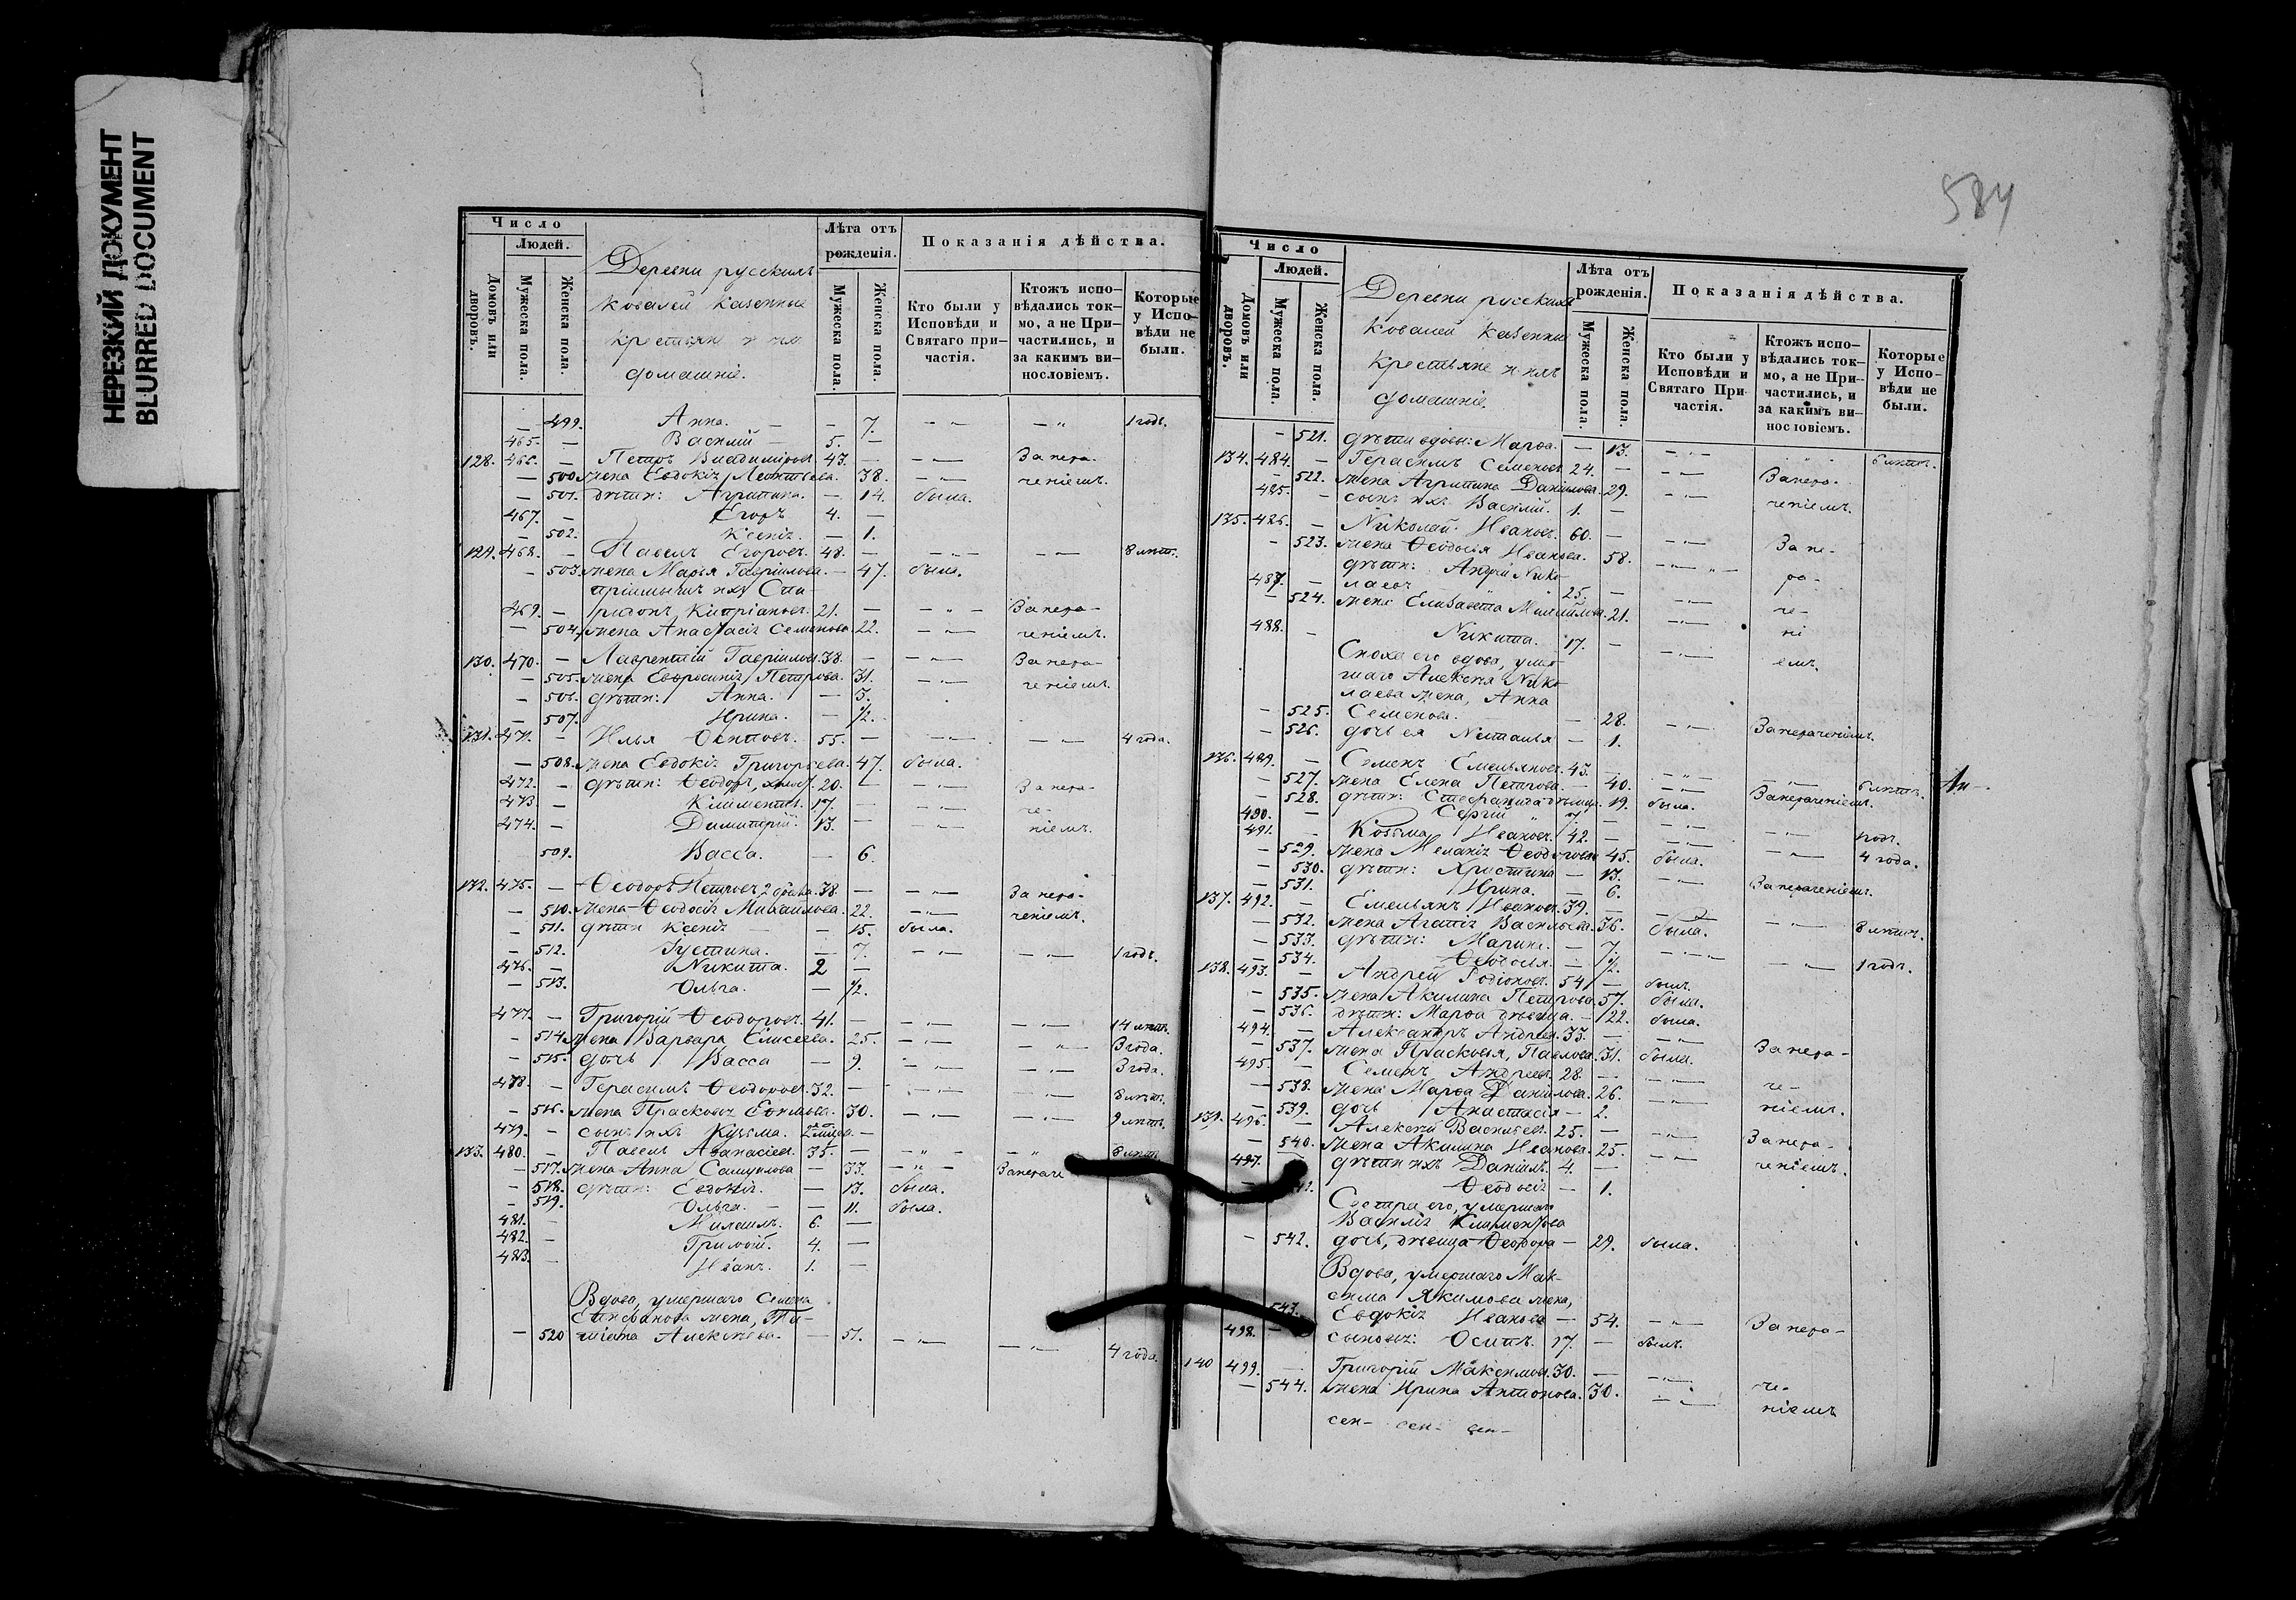 НЕРЕЗКИЙ ДОКУМЕНТ
BLURRED DOCUMENT
Число
Людей.
Домовъ или дворовъ.
Мужеска пола.
Женска пола.
Деревни русскихъ
Ковалей казенные
крестьяне и ихъ
домашніе.
Лѣта отъ
рожденія.
Мужеска пола.
Женска пола.
Показанія дѣйства.
Кто были у
Исповѣди и
Святаго при-
частія.
Ктожъ испо-
вѣдались ток-
мо, а не При-
частились, и
за какимъ ви-
нословіемъ.
Которые
у Испо-
вѣди не
были.
— 499. Анна. — — 7. — „ — — „ 1 годъ.
465. — Василій — 5. —
128. 466. — Петръ Владиміровъ. 43. — — „ — За нера-
— 500. жена Евдокія Леонтьева. 38. — „ — ченіемъ.
— 501. дѣти: Агрипина. — 14. была.
467. — Егоръ 4. —
— 502. Ксенія. — 1.
129. 468. — Павелъ Егоровъ. 48. — — „ — — „ — 8 лѣтъ.
— 503. жена Марья Гавріилова. — 47. была.
пріимышъ ихъ Спи-
469. — ридонъ Кипріановъ. 21. — — „ — За нера-
— 504. жена Анастасія Семенова. 22. — „ — ченіемъ.
130. 470. — Лаврентій Гавріиловъ. 38. — — „ — За нера-
— 505. жена Евфросинія Петрова. 31. — „ — ченіемъ.
— 506. дѣти: Анна. — 3.
— 507. Ирина. — 1/2.
131. 471. — Илья Осиповъ. 55. — — „ — — „ — 4 года.
— 508. жена Евдокія Григорьева. 47. была.
472. — дѣти: Ѳеодоръ, холост. 20. — — „ — За нера-
473 — Климентъ. 17. — — „ — че-
474. — Димитрій. 13. — — „ — ніемъ.
509. Васса. — 6.
132. 475. — Ѳеодоръ Петровъ 2 брака. 38. — — „ — За нера-
— 510. жена Ѳеодосія Михаилова. 22. — „ — ченіемъ.
— 511. дѣти Ксенія — — 15. была.
— 512. Іустина. — 7. — „ — — „ — 1 годъ.
476. — Никита. 2 —
— 513. Ольга. — 1/2.
477. — Григорій Ѳеодоровъ. 41. — — „ — — „ — 14 лѣтъ.
— 514. жена Варвара Елисеева. 25. — „ — — „ 3 года.
— 515. дочь Васса — 9. — „ — — „ — 3 года.
478. — Герасимъ Ѳеодоровъ. 32. — — „ — — „ — 8 лѣтъ.
— 516. жена Прасковья Ефимова. 30. — „ — — „ — 9 лѣтъ.
479. — сынъ ихъ Кузьма. —
133. 480. — Павелъ Аѳанасіевъ. 35. — — „ — — „ 8 лѣтъ
— 517. жена Анна Самуилова — 33. — „ — За нераче
— 518. дѣти: Евдокія. — 13. была.
— 519. Ольга. — — 11. была.
481. — Михаилъ. 6. —
482. — Григорій. 4. —
483. — Иванъ. 1. —
Вдова, умершаго Семена
Епифанова жена,
— 520 Алексѣева. — 51. — „ — — „ — 4 года.
584
Число
Людей.
Домовъ или дворовъ.
Мужеска пола.
Женска пола.
Деревни русскихъ
Ковалей казенные
Крестьяне и ихъ
домашніе.
Лѣта отъ
рожденія.
Мужеска пола.
Женска пола.
Показанія дѣйства.
Кто были у
Исповѣди и
Святаго При-
частія.
Ктожъ испо-
вѣдались ток-
мо, а не При-
частились, и
за какимъ ви-
нословіемъ.
Которые
у Испо-
вѣди не
были.
— 521. дѣти вдовы: Марѳа. — 13. — „ — 6 лѣтъ.
134. 484. — Герасимъ Семеновъ. 24. — — „ — За нера-
— 522. жена Агрипина Даніилова. 29. — „ — ченіемъ.
485. — сынъ ихъ Василій. 1. —
135. 486. — Николай Ивановъ. 60. — — „ — За не-
— 523. жена Ѳеодосія Иванова. 58. — „ — ра-
дѣти: Андрей Нико-
487. — лаевъ 25. — — „ — че-
— 524. жена Елизавета Михайлова. 21. — „ — ні
488. — Никита. 17. — — „ — емъ.
Сноха его вдова, умер-
шаго Алексѣя Нико-
лаева жена, Анна
— 525. Семенова. — 28. — „ — За нераченіемъ.
— 526. дочь ея Наталья — 1.
136. 489. — Семенъ Емельяновъ. 43. — — „ — — „ — 6 лѣтъ.
— 527. жена Елена Петрова. — 40. — „ — За нераченіемъ.
— 528. дѣти: Стефанида дѣвица. 19. была.
490. — Сергій 7 — — „ — — „ — 1 годъ.
491. — Козьма Ивановъ. 42. — — „ — — „ — 4 года.
— 529. жена Меланія Ѳеодорова 45. была.
— 530. дѣти: Христина — 13. — „ — За нераченіемъ.
— 531. Ирина. — 6.
137. 492. — Емельянъ Ивановъ. 39. — — „ — — „ — 8 лѣтъ.
— 532. жена Агапія Васильева. 36. была.
— 533. дѣти: Марина. — 7. — „ — — „ — 1 годъ.
— 534. Ѳеодосья. — 1/2.
138. 493. — Андрей Родіоновъ. 54 — былъ.
— 535. жена Акилина Петрова. 57. была.
— 536. дѣти: Марѳа дѣвица. — 22. была.
494. — Александръ Андреевъ. 33. — — „ — За нера-
— 537. жена Прасковья, Павлова. 31. была.
495. — Семенъ Андреевъ. 28. — — „ — че-
— 538. жена Марѳа Даніилова. 26. — „ — ніемъ.
— 539. дочь Анастасія — 2.
139. 496. — Алексѣй Васильевъ. 25. — — „ — За нера-
— 540. жена Акилина Иванова. 25. — „ — ченіемъ.
497. дѣти ихъ Даніилъ. 4. —
Ѳеодосія — 1.
Сестра его, умершаго
Василія Климентова
— 542. дочь, дѣвица Ѳеодора — 29. была.
Вдова, умершаго Мак-
сима Якимова жена,
543. Евдокія Иванова — 54. — „ — За нера-
498. — сыновья: Осипъ. 17. — былъ.
140 499. — Григорій Максимовъ. 30. — — „ — че-
— 544. жена Ирина Антонова. 30. — „ — ніемъ